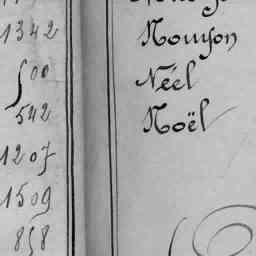 1342
500
542
1207
1509
858
Nouyon
Néel
Noël